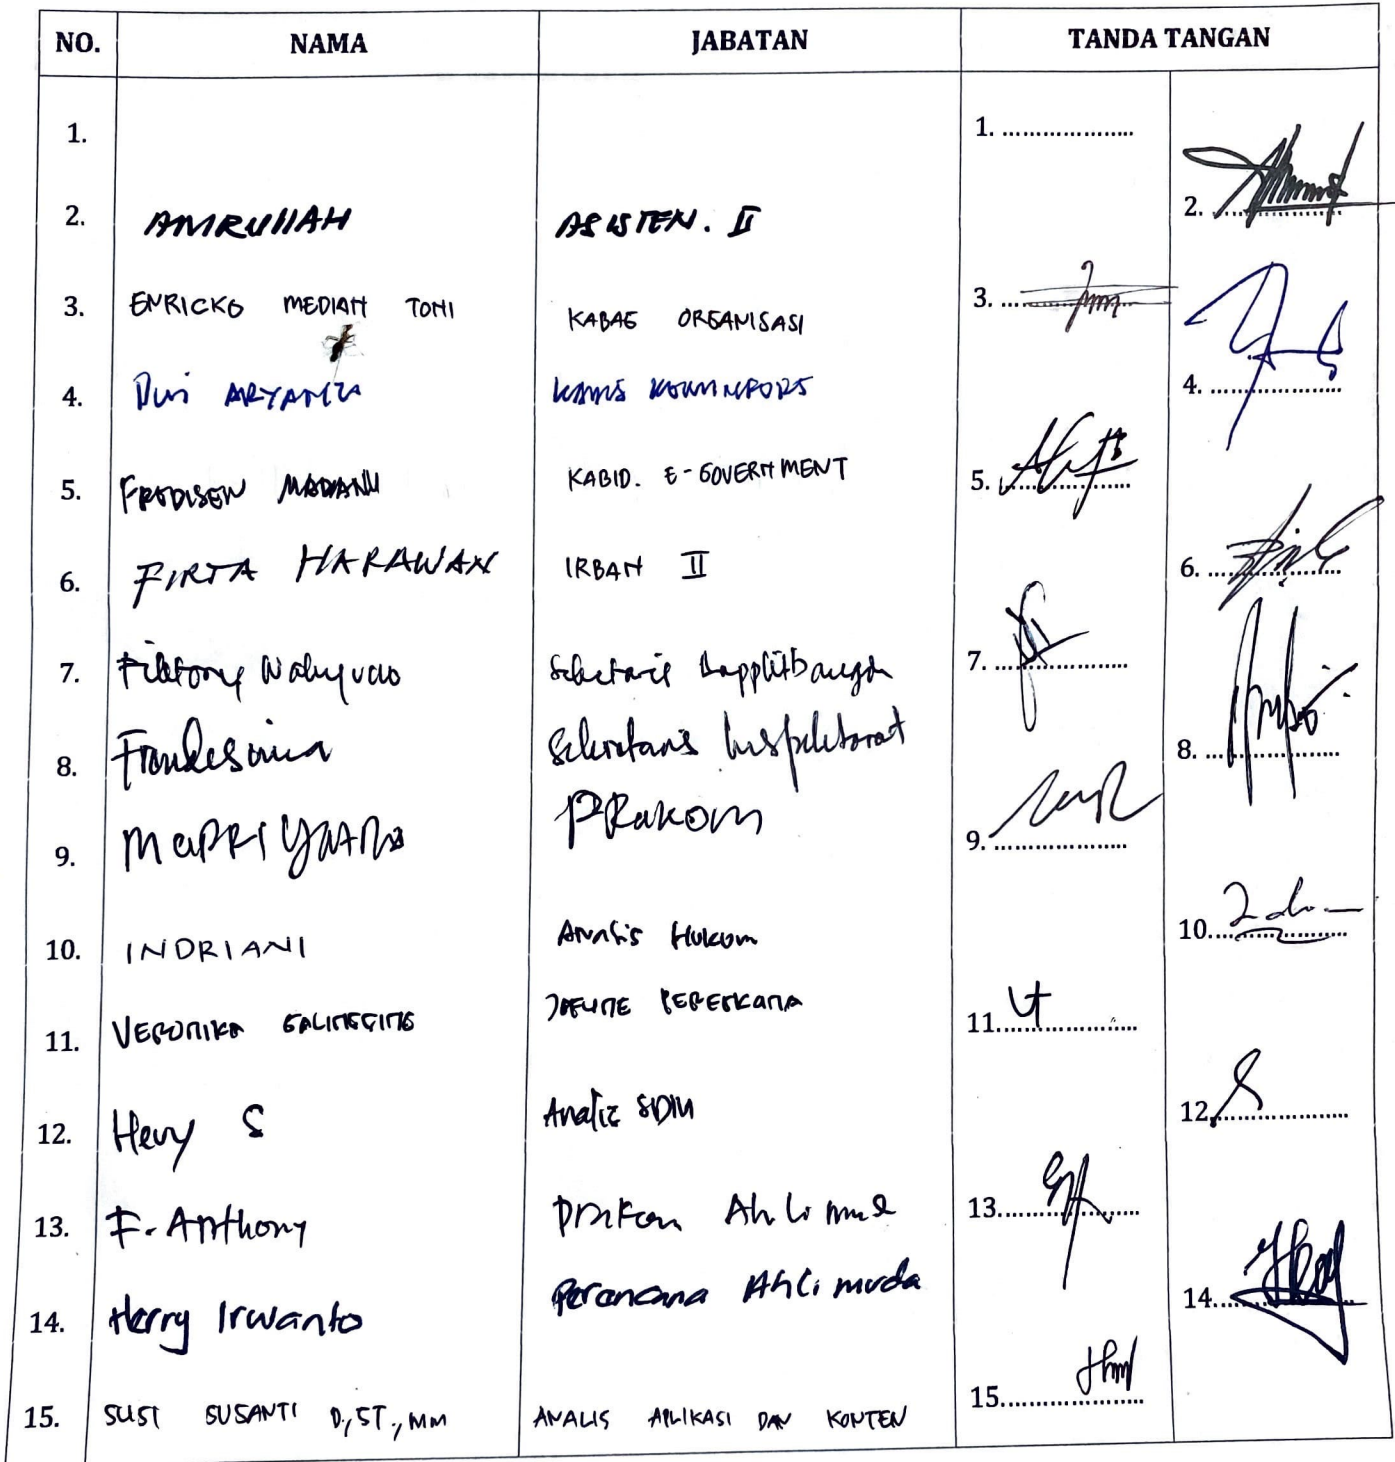 NO. NAMA JABATAN TANDA TANGAN
1. 1. ....................
2. AMRULLAH ASISTEN. II 2. ....................
3. ENRICKO MEDIAN TONI KABAG ORGANISASI 3. ....................
4. Dwi ARYANZA KADIS KOMINFO 4. ....................
5. FRODISEN MADANU KABID. E-GOVERNMENT 5. ....................
6. FIRTA HARAWAN IRBAN II 6. ....................
7. Wahyudo Sekretaris Bapplitbangda 7. ....................
8. Frankesima Sekretaris Inspektorat 8. ....................
9. PRakom 9. ....................
10. INDRIANI Analis Hukum 10. ....................
11. VERONIKA 11. ....................
12. Hevy S Analis SDM 12. ....................
13. F. Anthony Ahli 13. ....................
14. Herry Irwanto Perencana Ahli muda 14. ....................
15. SUSI SUSANTI D., ST., MM ANALIS APLIKASI DAN KONTEN 15. ....................